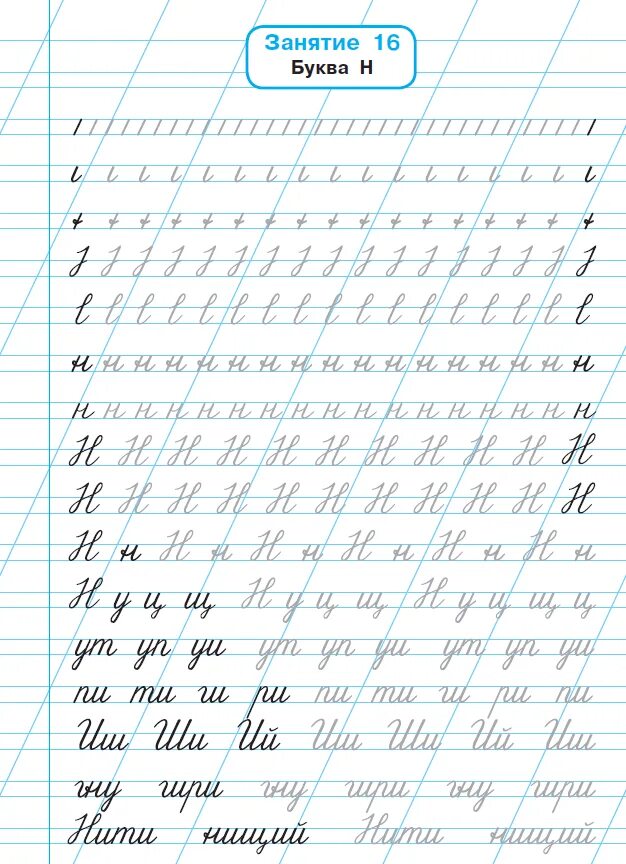 Занятие 16
Буква Н
н н н н н н н н н н н н н н н н н
н н н н н н н н н н н н н н н н н
Н Н Н Н Н Н Н Н Н Н Н
Н Н Н Н Н Н Н Н Н Н Н
Н н Н н Н н Н н Н н Н н
Н у ц щ Н у ц щ Н у ц щ ц
ут уп уи ут уп уи ут уп уи
пи ти ги ри пи ти ги ри пи
Иш Ши Ий Иш Ши Ий Иш
гну гири гну гири гну гири
Нити нищий Нити нищий